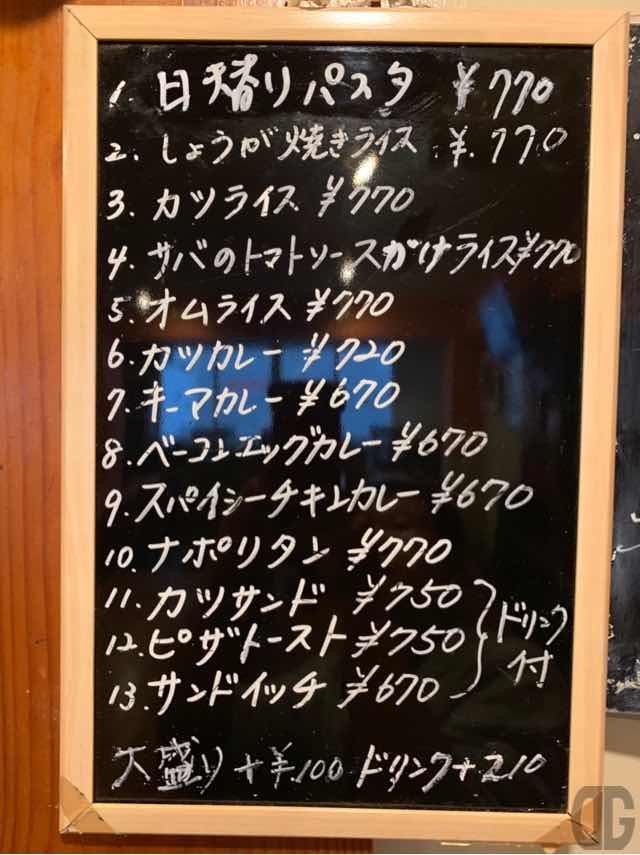 1. 日替りパスタ ¥770
2. しょうが焼きライス ¥.770
3. カツライス ¥770
4. サバのトマトソースがけライス¥770
5. オムライス ¥770
6. カツカレー ¥720
7. キーマカレー ¥670
8. ベーコンエッグカレー ¥670
9. スパイシーチキンカレー ¥670
10. ナポリタン ¥770
11. カツサンド ¥750
12. ピザトースト ¥750
13. サンドイッチ ¥670
ドリンク
付
大盛り +¥100 ドリンク+210
DG